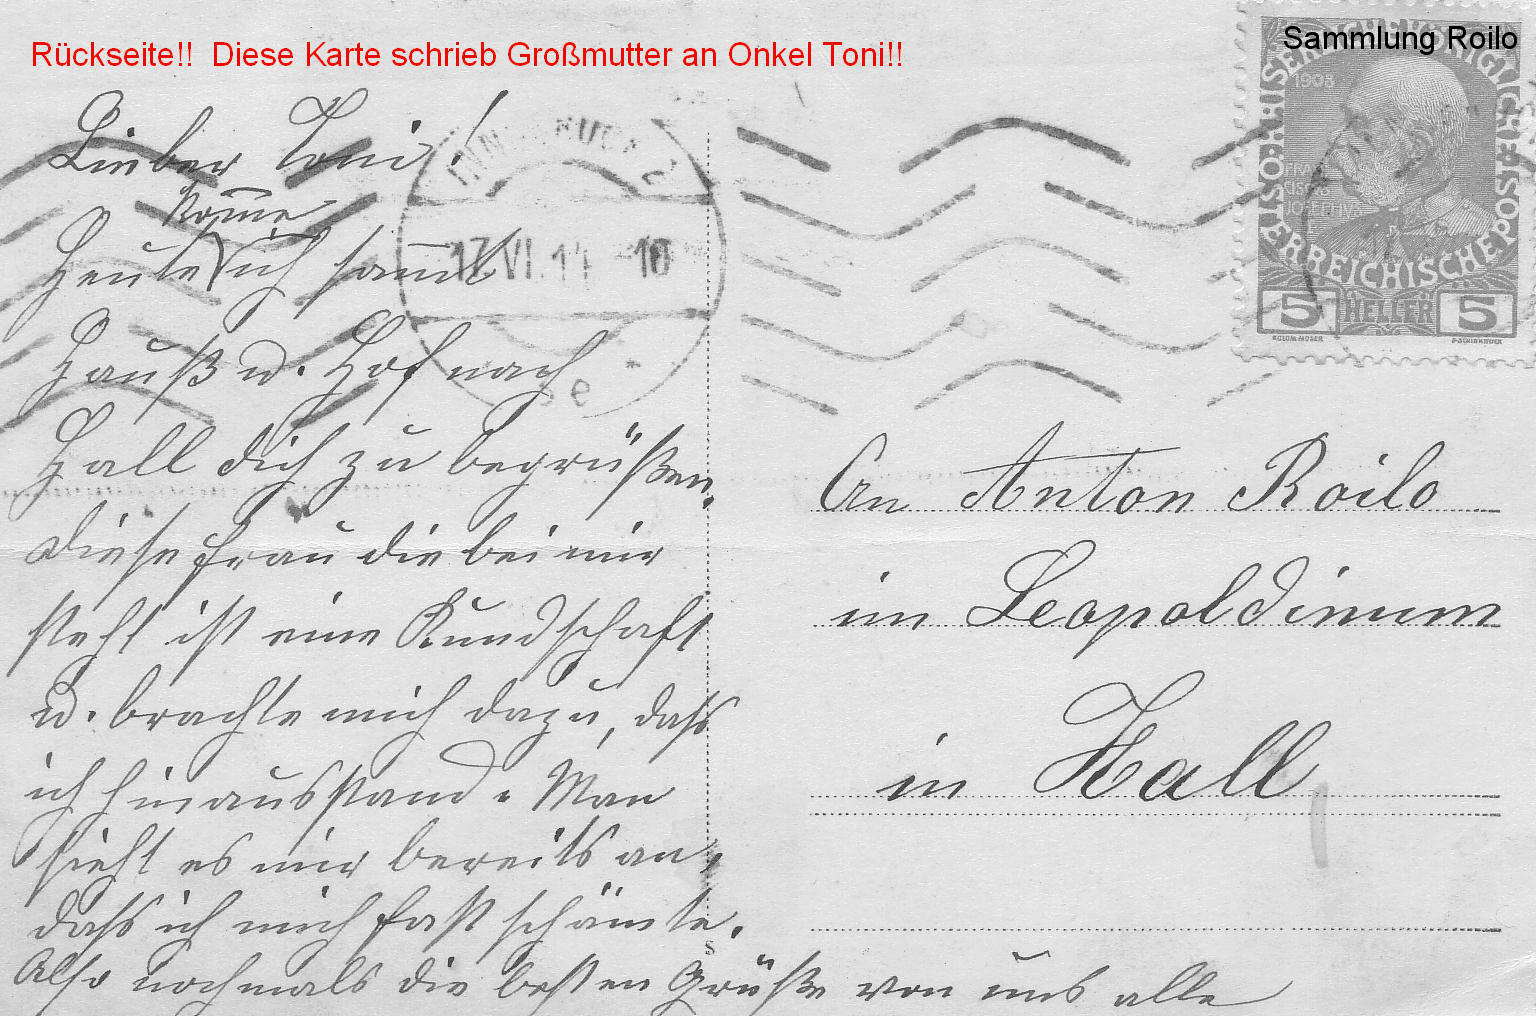 Rückseite!! Diese Karte schrieb Großmutter an Onkel Toni!!
Sammlung Roilo
Lieber Toni!
kom̅e
Heute ich sam̅t
Hauß u. Hof nach
Hall dich zu begrüßen.
Diese Frau die bei mir
steht ist eine Kundschaft
u. brachte mich dazu, dass
ich hinausstand. Man
sieht es mir bereits an,
dass ich mich fast schämte.
Also nochmals die besten Grüße von uns alle
INNSBRUCK 2
17.VI.14 - 10
KAISERLICHE KÖNIGLICHE
ÖSTERREICHISCHE POST
1908
FRAN
CISCVS
JOSEPHVS
5 HELLER 5
KOLOM·MOSER
F·SCHIRNBÖCK
An Anton Roilo
im Leopoldinum
in Hall